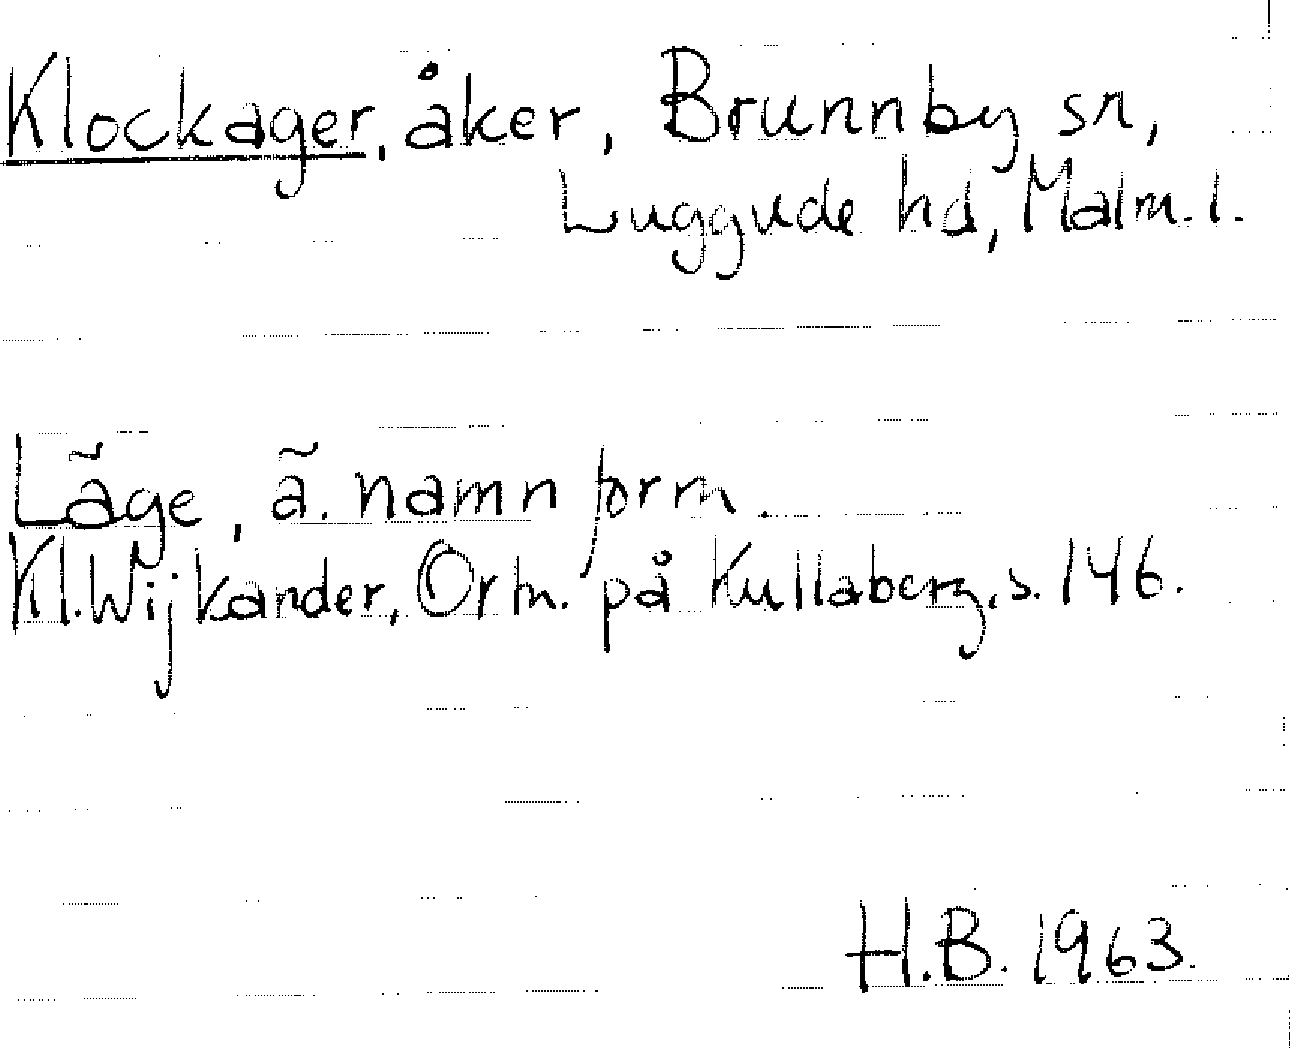 Klockager, åker, Brunnby sn,
Luggude hd, Malm. l.
Läge, ä. namnform.
Kl. Wijkander, Ortn. på Kullaberg, s. 146.
H.B. 1963.